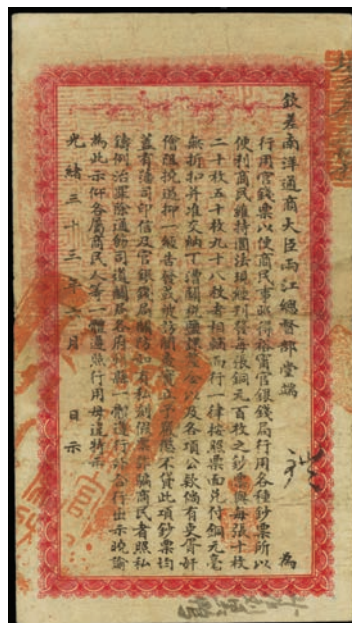 欽差南洋通商大臣兩江總督部堂端 為
行用官錢票以便商民事照得裕甯官銀錢局行用各種鈔票所以
便利商民維持圜法現經刊發每張銅元百枚之鈔票與每張十枚
二十枚五十枚九十八枚者相輔而行一律按照票面兌付銅元毫
無折扣并准交納丁漕關稅鹽課釐金以及各項公款倘有吏胥奸
僧阻撓過抑一經告發或被訪聞查實立予嚴懲不貸此項鈔票均
蓋有藩司印信及官銀錢局關防如有私刻假票詐騙商民者照私
鑄例治罪除通飭司道關局各府州縣一體遵行外合行出示曉諭
為此示仰各屬商民人等一體遵照行用毋違特示
光緒三十三年 月 日示